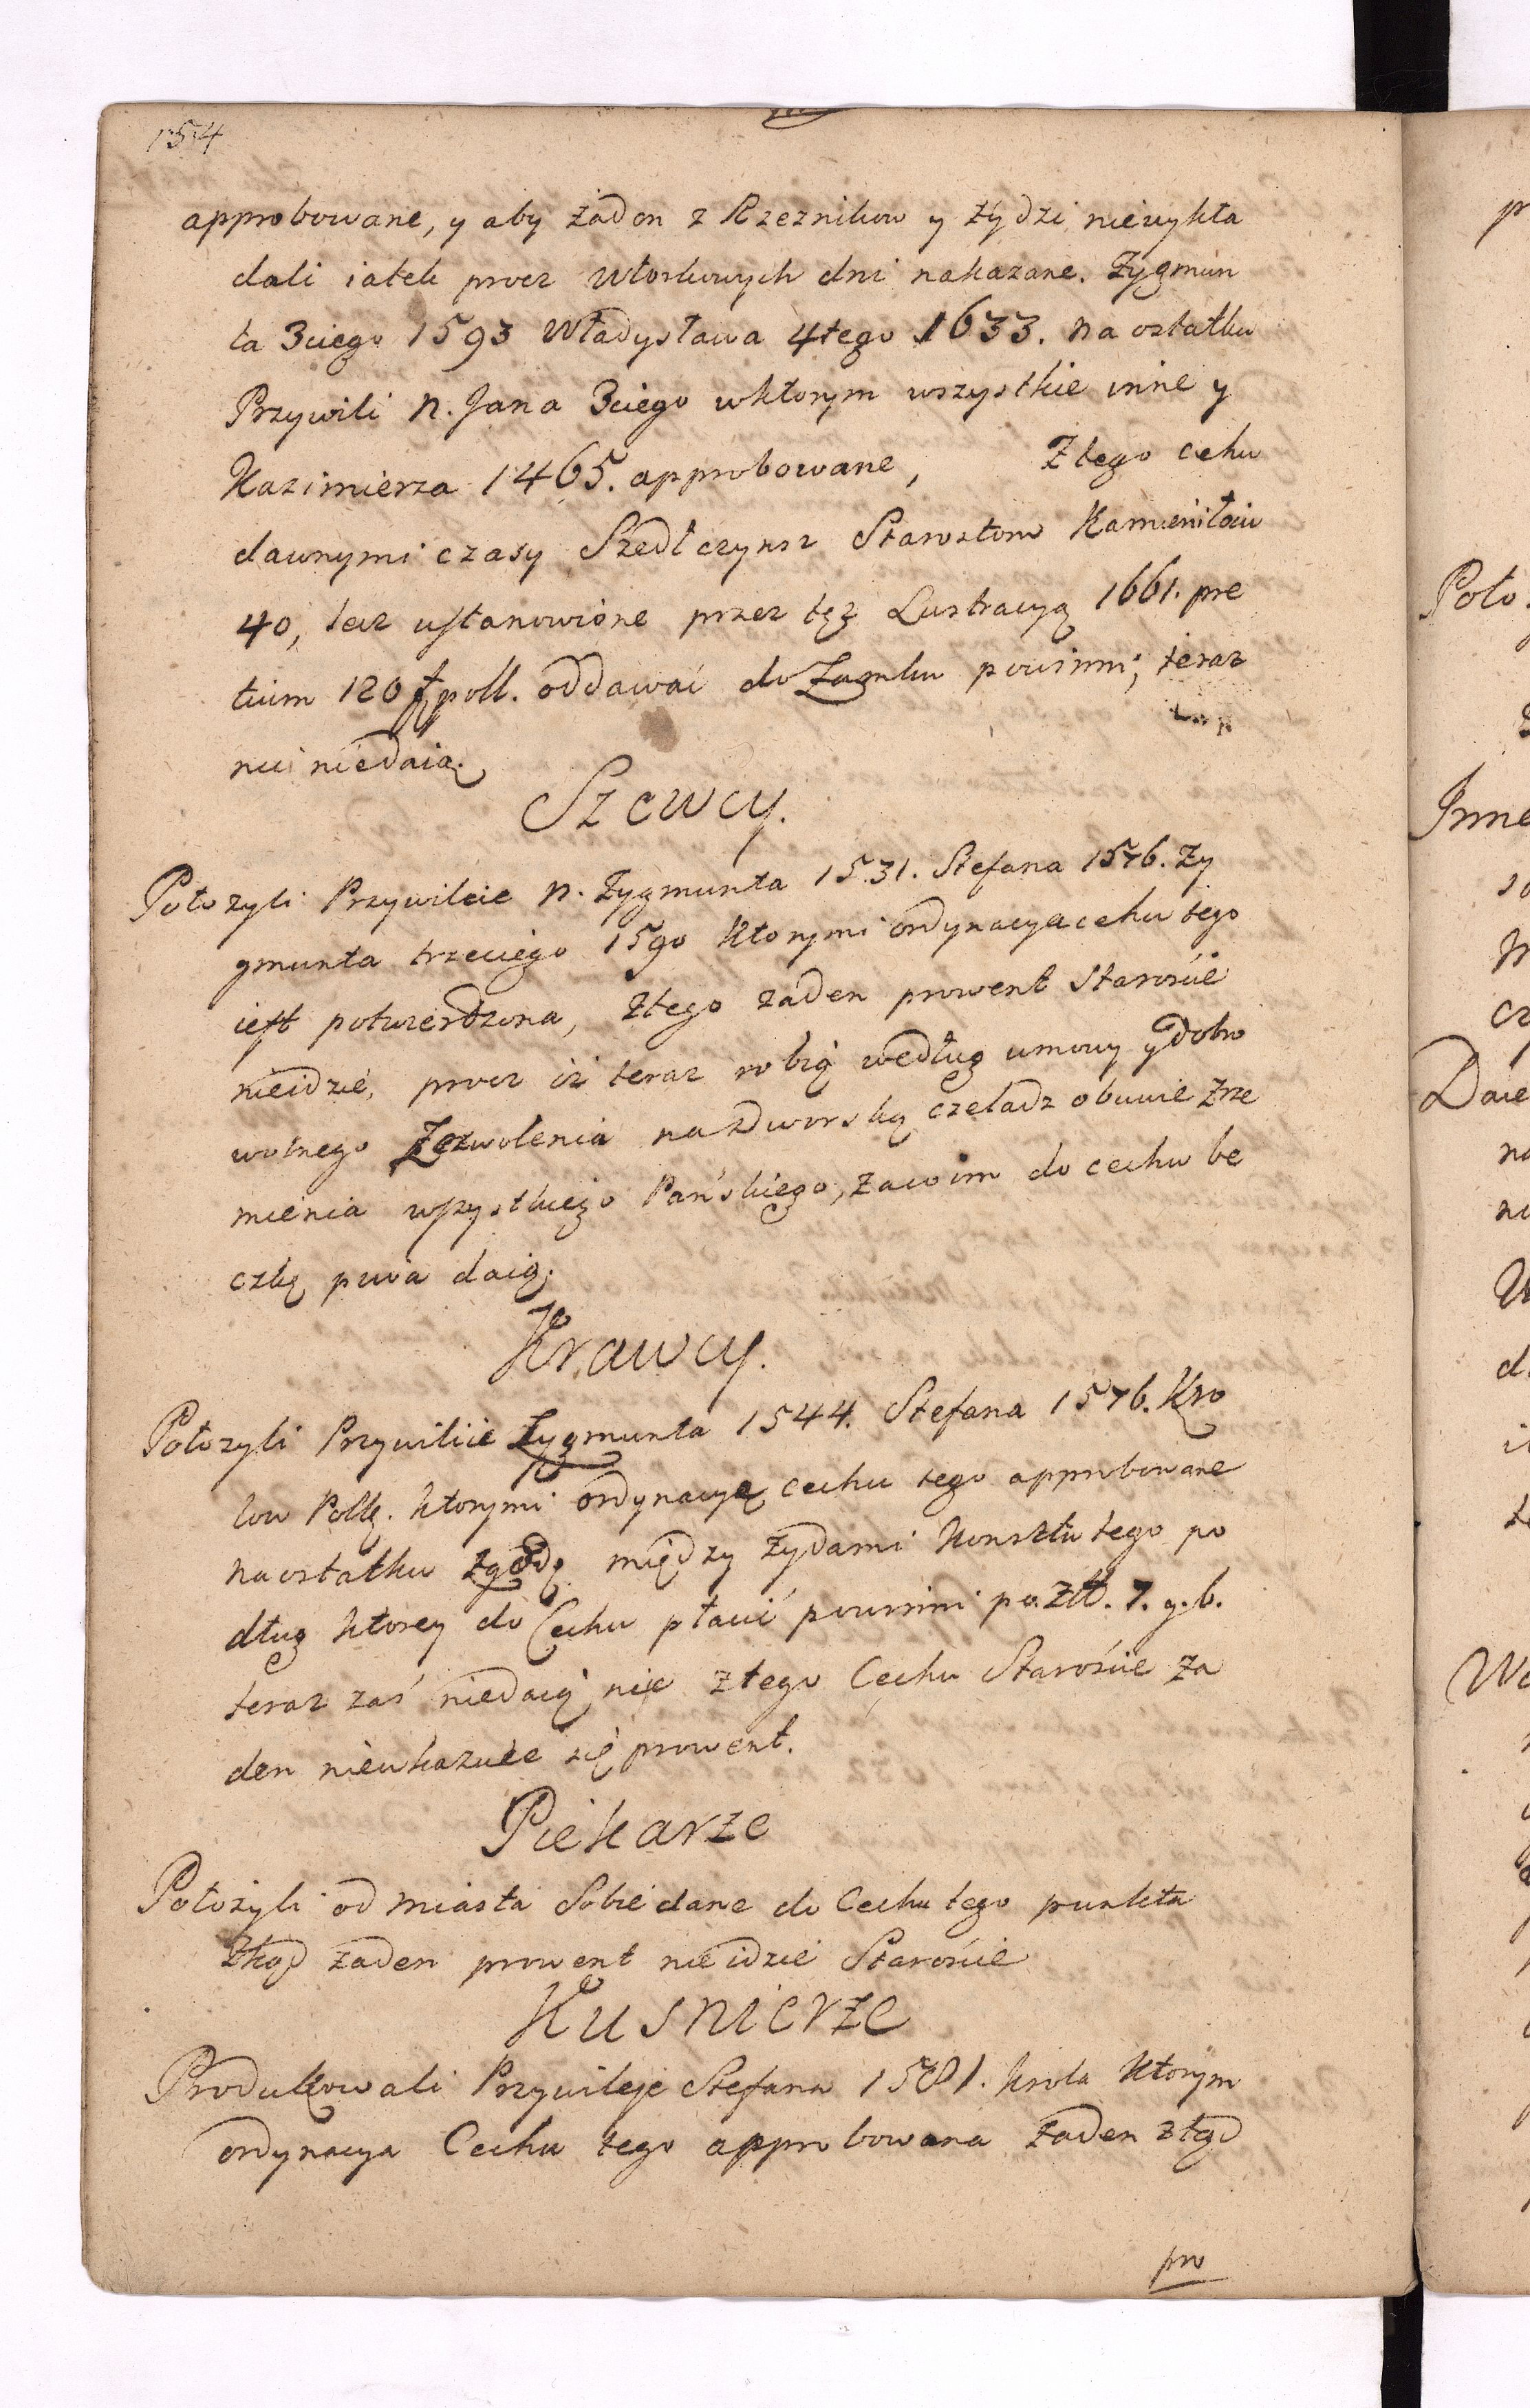 154
approbowane, y aby żaden z Rzeznikow y żydzi niewykła
dali iatek procz Wtorkowych dni nakazane. Zygmun
ta 3ciego 1593 Władysława 4tego 1633. na ostatku
Przywili N. Jana 3ciego wktorym wszystkie inne y
Kazimierza 1465. approbowane, Ztego cehu
dawnymi czasy Szedł czynsz Starostom
40, lecz ustanowione przez tęż Lustracyą 1661. pre
tium 120 poll. oddawać do Zamku powinni, teraz
nic niedaią.
Szewcy.
Położyli Przywileie N. Zygmunta 1531. Stefana 1576. Zy
gmunta trzeciego 1590 Ktorymi ordynacya cehu tego
iest potwierdzona, Ztego żaden prowent Staroście
nieidzie, procz iż teraz robią według umowy y dobro
wolnego Zezwolenia na Dworską czeladz obuwie Zrze
mienia wszystkiego Pańskiego, do cechu be
czkę piwa daią.
Krawcy.
Położyli Przywiliie Zygmunta 1544. Stefana 1576. Kro
low Polk. ktorymi ordynacyę cechu tego approbowane
naostatku zgodę między żydami Konsztu tego po
dług ktorey do Cechu płacić powinni po Złł. 7. g. 6.
teraz zaś niedaią, nic ztego Cechu Staroście ża
den nieukazuie się prowent.
Piekarze
Położyli od Miasta Sobie dane do Cechu tego punkta
Ztąd żaden prowent nieidzie Staroście
Kusnierze
Produkowali Przywileje Stefana 1581. krola Ktorym
ordynacya Cechu tego approbowana żaden ztąd
pro